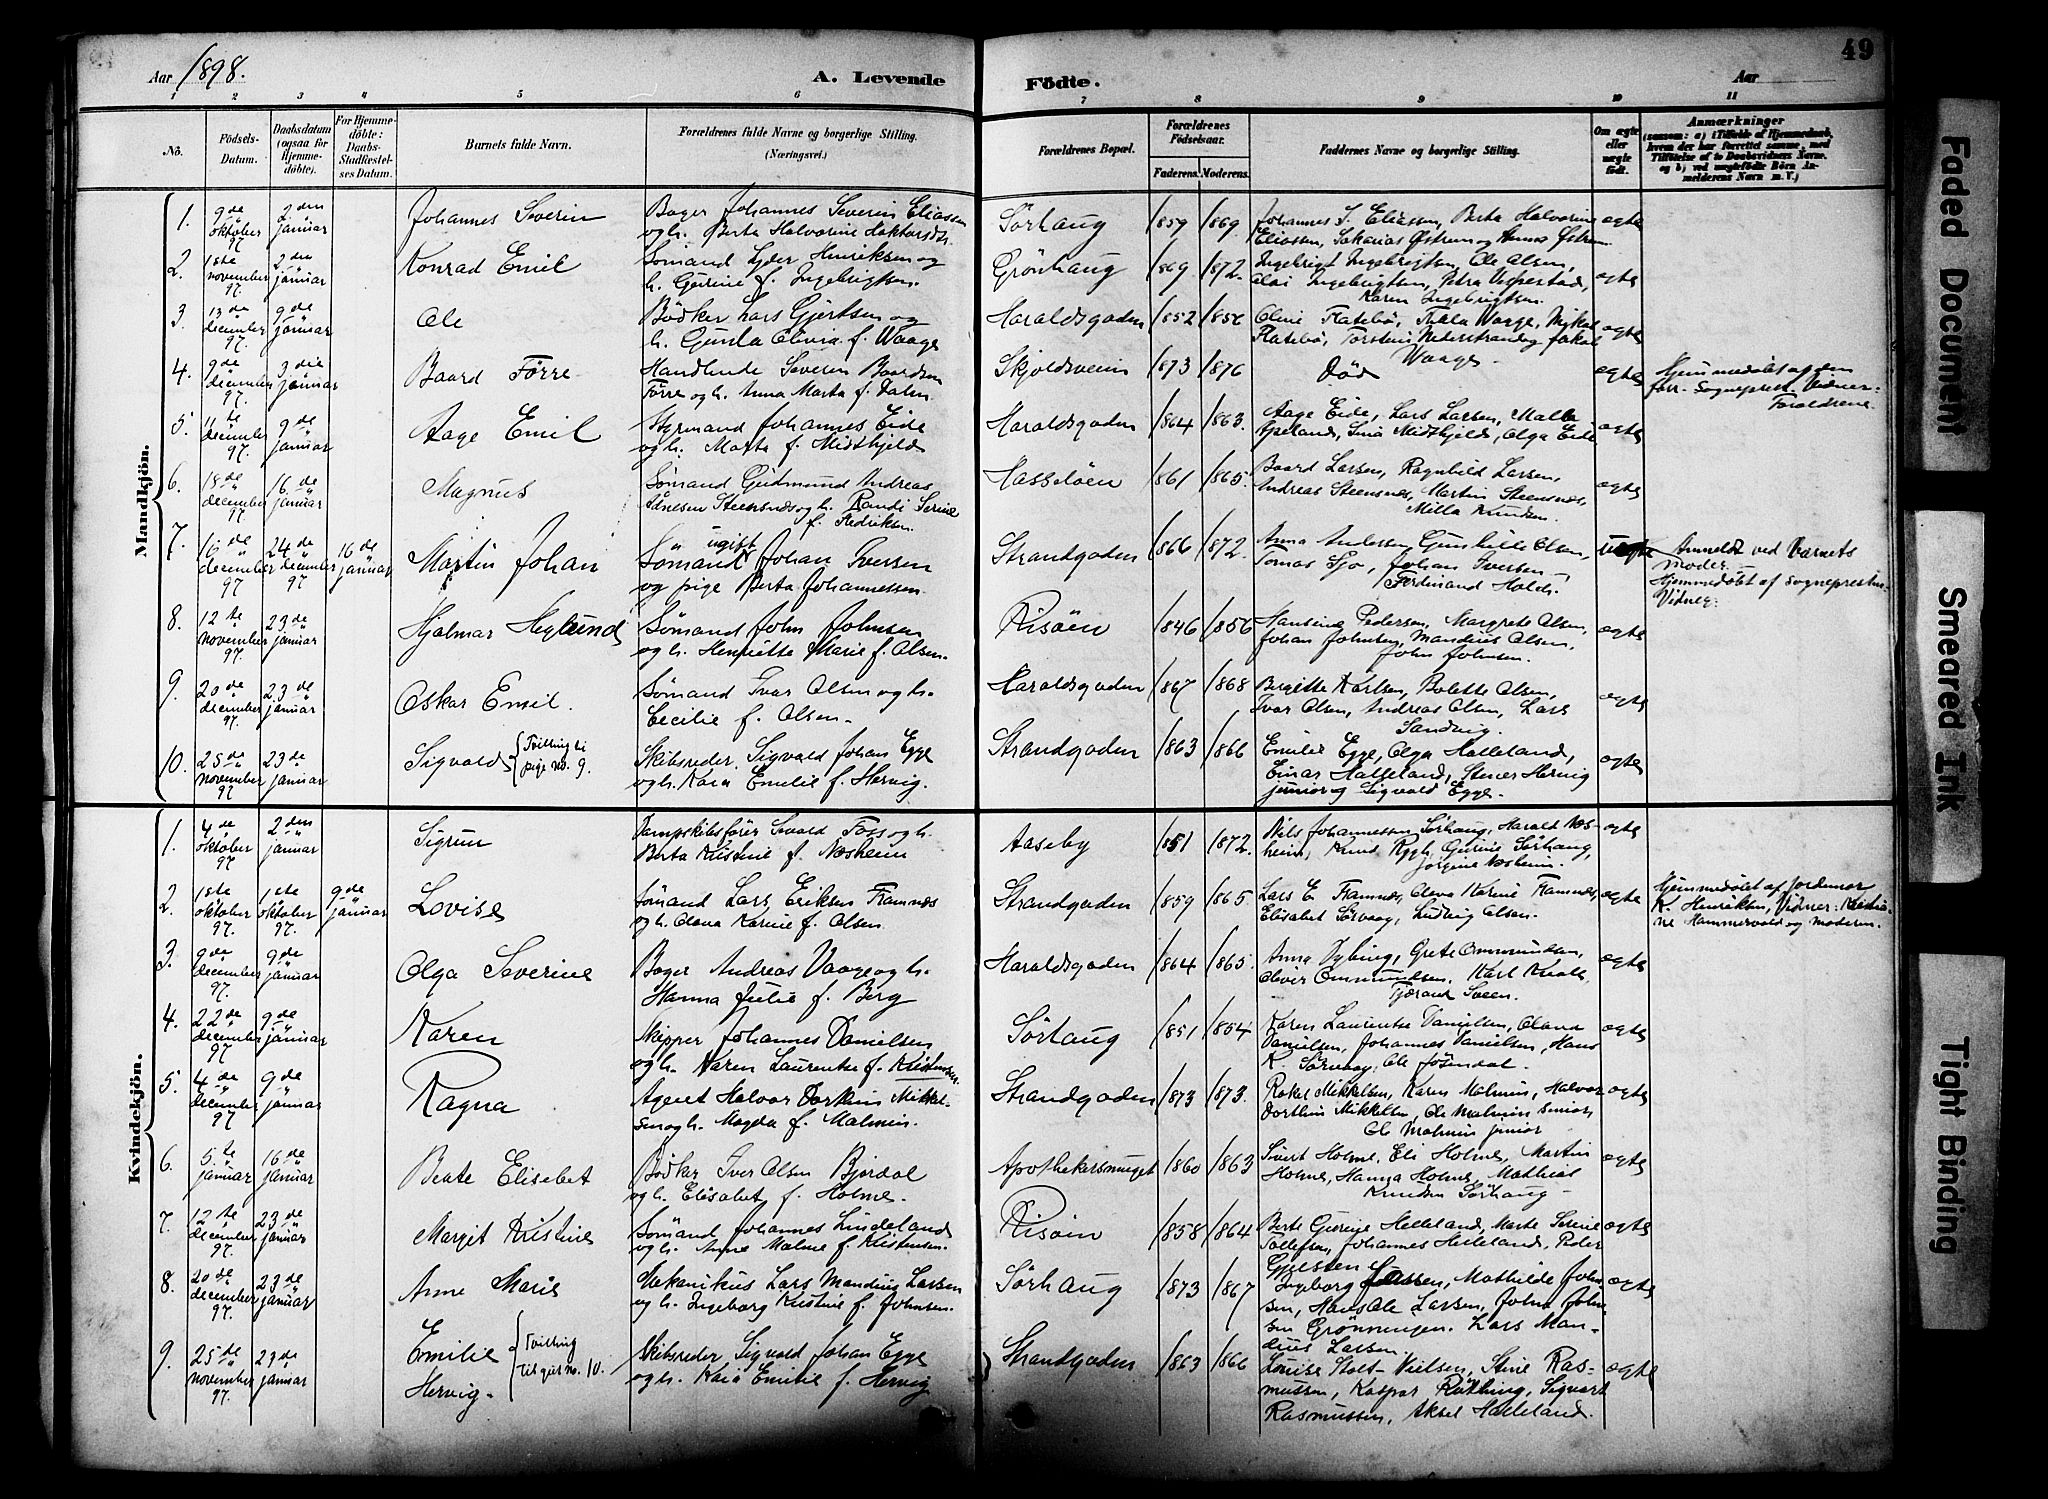 Aar 1898.
A. Levende
Födte.
Aar
49
1 2 3 4 5 6 7 8 9 10 11
No.
Födsels-Datum.
Daabsdatum (ogsaa för Hjemme-döbte).
For Hjemme-döbte: Daabs-Stadfæstel-ses Datum.
Barnets fulde Navn.
Forældrenes fulde Navne og borgerlige Stilling. (Næringsvei.)
Forældrenes Bopæl.
Forældrenes Födselsaar.
Faderens. Moderens.
Faddernes Navne og borgerlige Stilling.
Om ægte eller uægte födt.
Anmærkninger
Mandkjön.
1. 9de oktober 97. 2den januar Johannes Severin
Bager Johannes Severin Eliassen
og h. Berta Halvorine
Sörhaug 1859 1869
Johannes S. Eliassen, Berta Halvorine
Eliassen, Sakarias Østrem og Østrem
ægte
2. 1ste november 97. 2den januar Konrad Emil
Sömand Lyder Henriksen og
h. Gurine f. Ingebrigtsen.
Grönhaug 1869 1872.
Ingebrigt Ingebrigtsen, Ole Olsen,
Ingebrigtsen, Petra Vespestad,
Karen Ingebrigtsen.
ægte
3. 13de december 97. 9de januar Ole
Bödker Lars Gjertsen og
h. Gunla Olivia f. Waage
Haraldsgaden 1852 1856
Oline Flatebö, Tekla Waage, Mikal
Flatebö, Torstein Nederstrand og Jakob
Waage
ægte
4. 9de december 97. 3die januar Baard Förre
Handlende Severin Baardsen
Förre og h. Anna Marta f. Dalen
Skjoldsveien 1873 1876
Död
ægte
Hjemmedöbt af den
Sogneprest. Vidner:
Forældrene.
5. 11te december 97. 9de januar Aage Emil
Styrmand Johannes Eide
og h. Marta f. Midthjeld
Haraldsgaden 1864 1863.
Aage Eide, Lars Larsen, Malla
Sina Midthjeld, Olga Eide
ægte
6. 18de december 97. 16de januar Magnus
Sömand Gudmund Andreas
Ådnesen Steensnæs og h. Randi Serine
f. Fredriksen.
Hasselöen 1861 1865.
Baard Larsen, Ragnhild Larsen,
Andreas Steensnes, Martin Steensnes,
Milla Knudsen.
ægte
7. 16de december 97 24de december 97 16de januar Martin Johan
ugift
Sömand Johan Iversen
og pige Berta Johannessen.
Strandgaden 1866 1872.
Anna Andersen, Gunhilde Olsen,
Tomas Sjo, Johan Iversen,
Ferdinand Holdt.
uægte
Anmeldt ved Barnets
Moder.
Hjemmedöbt af Sognepresten.
Vidner:
8. 12te november 97. 23de januar Hjalmar Heglund
Sömand John Johnsen
og h. Henriette Marie f. Olsen.
Risöen 1846 1856
Hansine Pedersen, Margrete Olsen,
Johan Johnsen, Mandius Olsen,
John Johnsen.
ægte
9. 20de december 97. 23de januar Oskar Emil.
Sömand Ivar Olsen og h.
Cecilie f. Olsen.
Haraldsgaden 1867 1868
Birgitte Karlsen, Bolette Olsen,
Ivar Olsen, Andreas Olsen, Lars
Sandvig.
ægte
10. 25de november 97 23de januar Sigvald {Tvilling til pige no. 9.
Skibsreder Sigvald Johan Egge
og h. Kaia Emilie f. Hervig.
Strandgaden 1863 1866
Emilie Egge, Olga Halleland,
Einar Halleland, Stener Hervig
junior og Sigvald Egge.
ægte
Kvindekjön.
1. 4de oktober 97. 2den januar Sigrun
Dampskibsförer Sevald Foss og h.
Berta Kristine f. Næsheim
Aaseby 1851 1872.
Nils Johannessen Sörhaug, Harald Næs-
heim, Knud Rygh, Gurine Sörhaug,
Jorgine Næsheim.
ægte
2. 1ste oktober 97. 1ste oktober 97. 9de januar Lovise
Sömand Lars Eriksen Framnæs
og h. Olava Karine f. Olsen.
Strandgaden 1859 1865
Lars E. Framnæs, Olava Karine Framnæs,
Elisabet Sörvaag, Ludvig Olsen.
ægte
Hjemmedöbt af Jordemor
K. Henriksen, Vidner: Kristia-
ne Hammervold og Moderen.
3. 9de december 97. 9de januar Olga Severine
Bager Andreas Vaage og h.
Hanna Julie f. Berg
Haraldsgaden 1864 1865.
Anna Dybing, Grete Ommundsen,
Oliver Ommundsen, Karl
Tjerand Sveen.
ægte
4. 22de december 97 9de januar Karen
Skipper Johannes Danielsen
og h. Karen Laurentse f. Kristensen.
Sörhaug 1851 1854
Karen Laurentse Danielsen, Olava
Danielsen, Johannes Danielsen, Hans
K. Sörvaag, Ole Jösendal.
ægte
5. 4de december 97 9de januar Ragna
Agent Halvor Dorthin Mikkel-
sen og h. Magda f. Malmin.
Strandgaden 1873 1873.
Rakel Mikkelsen, Karen Malmin, Halvor
Dorthin Mikkelsen, Ole Malmin senior,
Ole Malmin junior
ægte
6. 5te januar 16de januar Beate Elisabet
Bödker Iver Olsen Bjordal
og h. Elisabet f. Holme.
Apothekersmuget 1860 1863
Sivert Holme, Eli Holme, Martin
Holme, Hanna Holme, Mathias
Knudsen Sörhaug
ægte
7. 12te december 97. 23de januar Margit Kristine
Sömand Johannes Lindeland
og h. Anne Malene f. Kristensen.
Risöen 1858 1864
Berte Gurine Helleland, Marte Serine
Tollefsen, Johannes Helleland, Peder
Gjesten
ægte
8. 20de december 97. 23de januar Anne Marie
Mekanikus Lars Mandius Larsen
og h. Ingeborg Kristine f. Johnsen.
Sörhaug 1873 1867
Ingeborg Larsen, Mathilde John-
sen, Hans Ole Larsen, John John-
sen Grönningen. Lars Man-
dius Larsen
ægte
9. 25de november 97. 23de januar Emilie Hervig. {Tvilling til gut no. 10.
Skibsreder Sigvald Johan Egge
og h. Kaia Emilie f. Hervig
Strandgaden 1863 1866
Louise Stolt-Nielsen, Stine Ras-
mussen, Kaspar Röthing, Sigvart
Rasmussen, Aksel Halleland.
ægte
Faded Document
Smeared Ink
Tight Binding